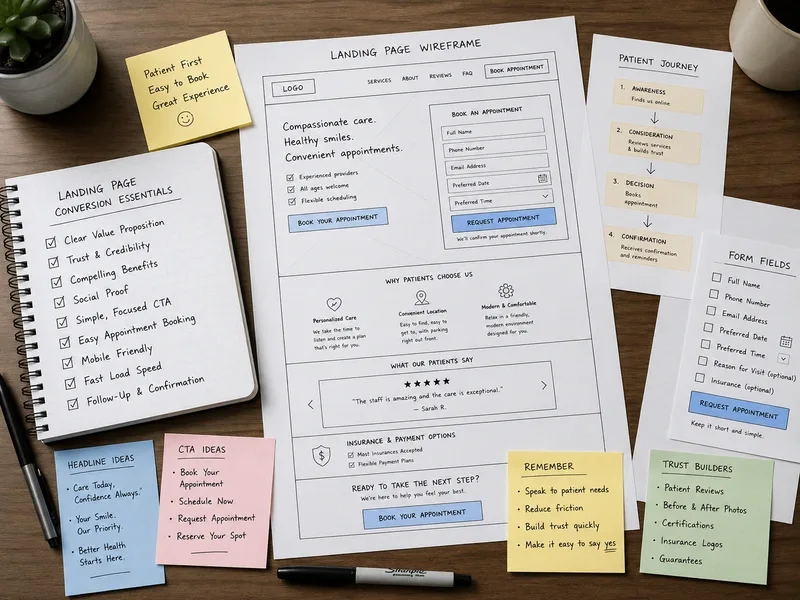 Patient First
Easy to Book
Great Experience
LANDING PAGE
CONVERSION ESSENTIALS
Clear Value Proposition
Trust & Credibility
Compelling Benefits
Social Proof
Simple, Focused CTA
Easy Appointment Booking
Mobile Friendly
Fast Load Speed
Follow-Up & Confirmation
HEADLINE IDEAS
• Care Today,
Confidence Always."
• Your Smile.
Our Priority.
• Better Health
Starts Here.
CTA IDEAS
• Book Your
Appointment
• Schedule Now
• Request Appointment
• Reserve Your Spot
LANDING PAGE WIREFRAME
LOGO
SERVICES ABOUT REVIEWS FAQ
BOOK APPOINTMENT
Compassionate care.
Healthy smiles.
Convenient appointments.
Experienced providers
All ages welcome
Flexible scheduling
BOOK YOUR APPOINTMENT
BOOK AN APPOINTMENT
Full Name
Phone Number
Email Address
Preferred Date
Preferred Time
REQUEST APPOINTMENT
We'll confirm your appointment shortly.
WHY PATIENTS CHOOSE US
Personalized Care
We take the time to
listen and create a plan
that's right for you.
Convenient Location
Easy to find, easy to
get to, with parking
right out front.
Modern & Comfortable
Relax in a friendly,
modern environment
designed for you.
WHAT OUR PATIENTS SAY
★★★★★
"The staff is amazing and the care is exceptional."
— Sarah R.
INSURANCE & PAYMENT OPTIONS
$
Most Insurances Accepted
Flexible Payment Plans
READY TO TAKE THE NEXT STEP?
We're here to help you feel your best.
BOOK YOUR APPOINTMENT
Sharpie
PATIENT JOURNEY
1. AWARENESS
Finds us online
2. CONSIDERATION
Reviews services
& builds trust
3. DECISION
Books
appointment
4. CONFIRMATION
Receives confirmation
and reminders
FORM FIELDS
Full Name
Phone Number
Email Address
Preferred Date
Preferred Time
Reason for Visit (optional)
Insurance (optional)
REQUEST APPOINTMENT
Keep it short and simple.
REMEMBER
• Speak to patient needs
• Reduce friction
• Build trust quickly
• Make it easy to say yes
TRUST BUILDERS
• Patient Reviews
• Before & After Photos
• Certifications
• Insurance Logos
• Guarantees